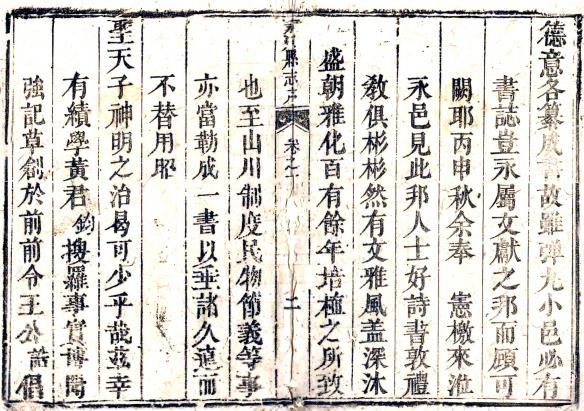 德意各纂成書故雖彈丸小邑必有
書誌豈永屬文獻之邦而顧可
闕耶丙申秋余奉 憲檄來涖
永邑見此邦人士好詩書敦禮
敎俱彬彬然有文雅風盖深沐
盛朝雅化百有餘年培植之所致
永 縣志序 卷之 二
也至山川制度民物節義等事
亦當勒成一書以垂諸久遠而
不替用昭
聖天子神明之治曷可少乎哉茲幸
有績學黃君鈞搜羅事實博聞
強記草創於前前令王公 倡